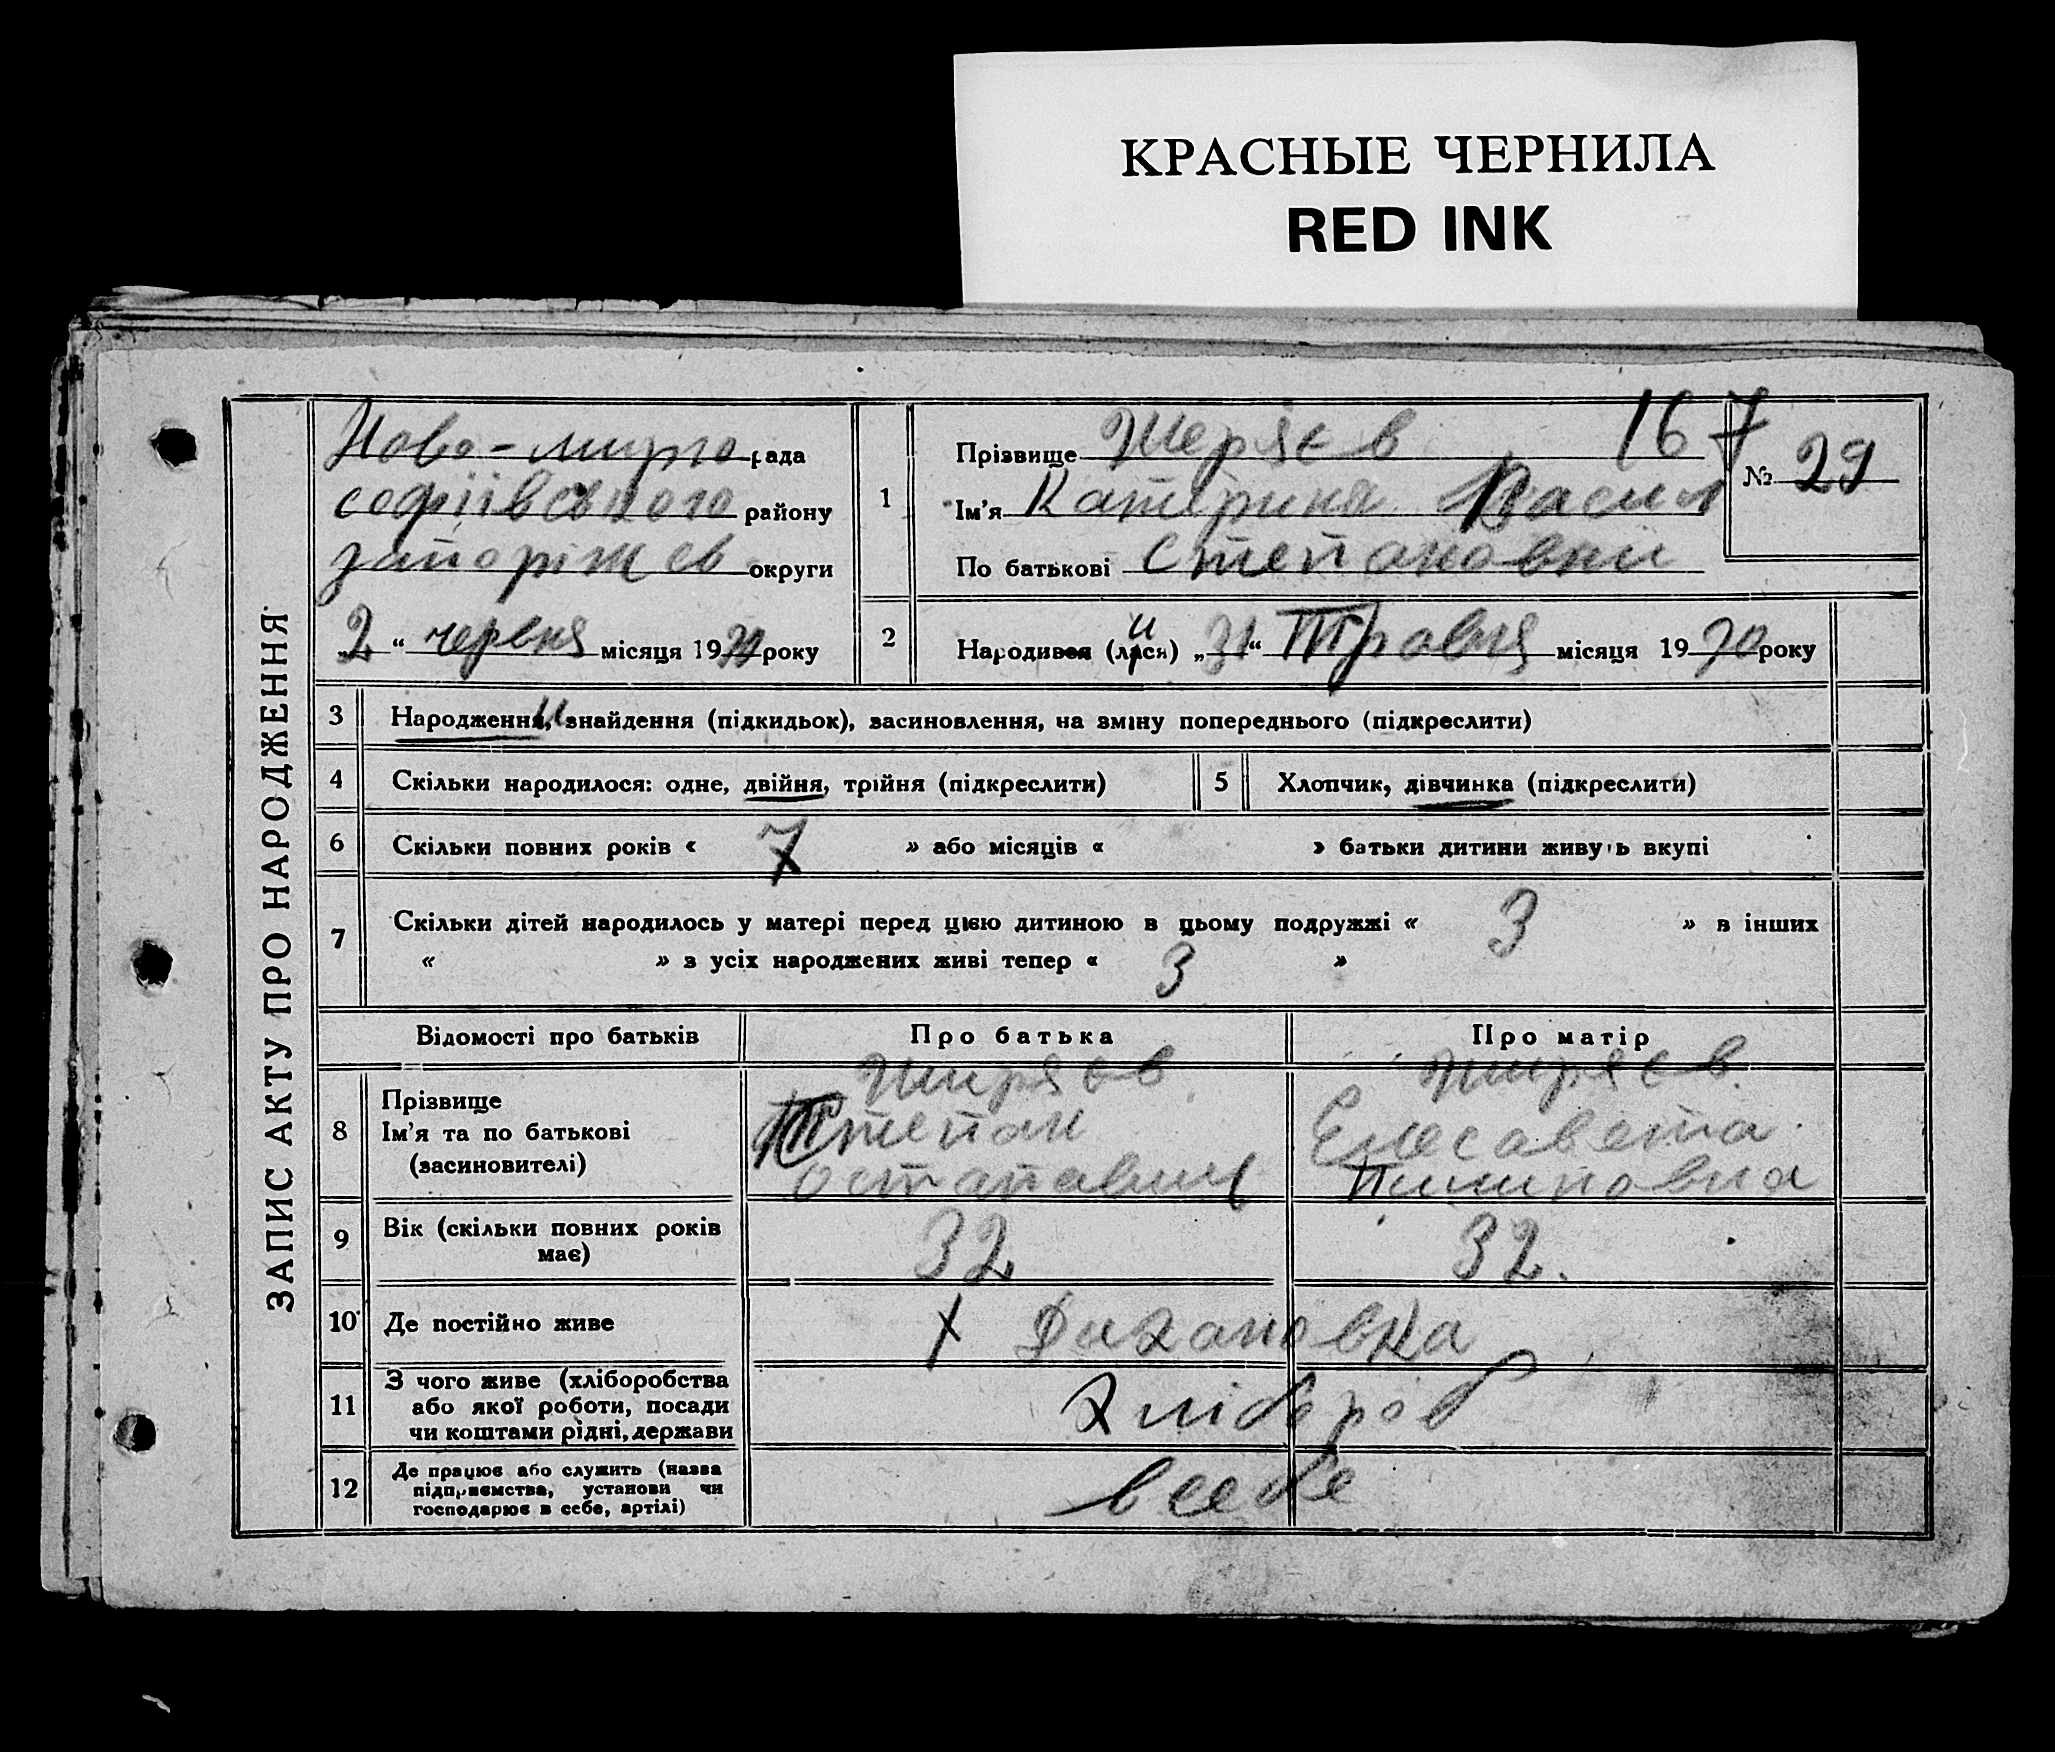 КРАСНЫЕ ЧЕРНИЛА
RED INK
ЗАПИС АКТУ ПРО НАРОДЖЕННЯ
Ново-мирго рада
софіівського району
запоріжсв округи
„2“ червня місяця 19 року
1 Прізвище Жеряєв 167
Ім'я Катерина Васил
По батькові Степановни
№ 29
2 Народився (лися) „31“ Травня місяця 1930 року
3 Народження, знайдення (підкидьок), засиновлення, на зміну попереднього (підкреслити)
4 Скільки народилося: одне, двійня, трійня (підкреслити) 5 Хлопчик, дівчинка (підкреслити)
6 Скільки повних років « 7 » або місяців « » батьки дитини живуть вкупі
7 Скільки дітей народилось у матері перед цією дитиною в цьому подружжі « 3 » в інших
« » з усіх народжених живі тепер « 3 »
Відомості про батьків Про батька Про матір
8 Прізвище Жиряєв Жиряєв
Ім'я та по батькові Степан Елесавета
(засиновителі) Остапавич Пилиповна
9 Вік (скільки повних років 32 32.
має)
10 Де постійно живе х
11 З чого живе (хліборобства Хлібороб
або якої роботи, посади
чи коштами рідні, держави
12 Де працює або служить (назва всебе
підприємства, установи чи
господарює в себе, артілі)